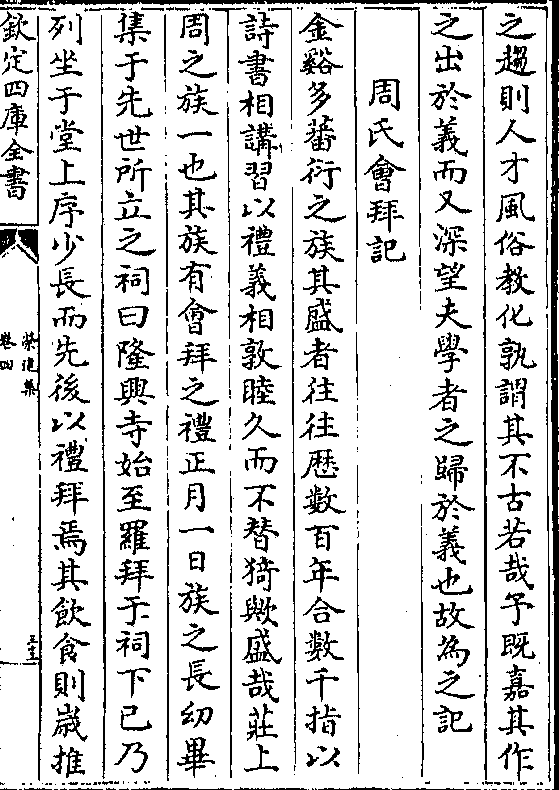 之趨則人才風俗教化孰謂其不古若哉予既嘉其作
之出於義而又深望夫學者之歸於義也故為之記
周氏會拜記
金谿多蕃衍之族其盛者往往歴數百年合數千指以
詩書相講習以禮義相敦睦久而不替猗歟盛哉莊上
周之族一也其族有會拜之禮正月一日族之長幼畢
集于先世所立之祠曰隆興寺始至羅拜于祠下已乃
列坐于堂上序少長而先後以禮拜焉其飲食則嵗推
欽定四庫全書
榮進集
卷四